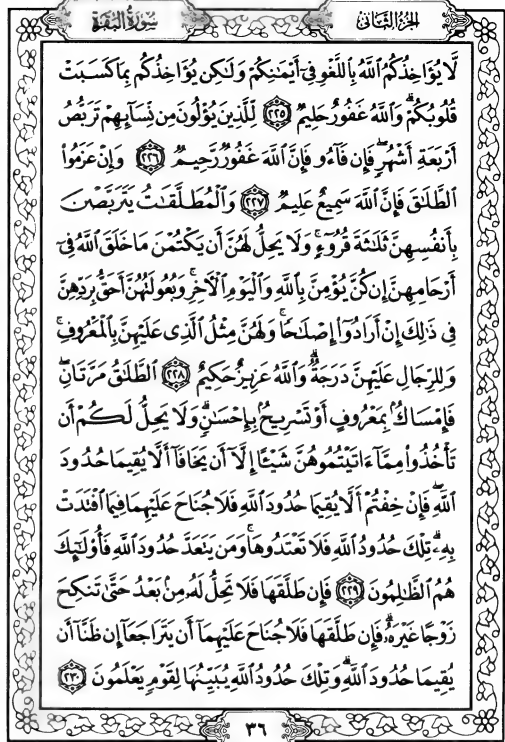 الجزء الثاني
سورة البقرة
لَّا يُؤَاخِذُكُمُ ٱللَّهُ بِٱللَّغْوِ فِىٓ أَيْمَـٰنِكُمْ وَلَـٰكِن يُؤَاخِذُكُم بِمَا كَسَبَتْ
قُلُوبُكُمْ ۗ وَٱللَّهُ غَفُورٌ حَلِيمٌ ٢٢٥ لِّلَّذِينَ يُؤْلُونَ مِن نِّسَآئِهِمْ تَرَبُّصُ
أَرْبَعَةِ أَشْهُرٍ ۖ فَإِن فَآءُو فَإِنَّ ٱللَّهَ غَفُورٌ رَّحِيمٌ ٢٢٦ وَإِنْ عَزَمُوا۟
ٱلطَّلَـٰقَ فَإِنَّ ٱللَّهَ سَمِيعٌ عَلِيمٌ ٢٢٧ وَٱلْمُطَلَّقَـٰتُ يَتَرَبَّصْنَ
بِأَنفُسِهِنَّ ثَلَـٰثَةَ قُرُوٓءٍ ۚ وَلَا يَحِلُّ لَهُنَّ أَن يَكْتُمْنَ مَا خَلَقَ ٱللَّهُ فِىٓ
أَرْحَامِهِنَّ إِن كُنَّ يُؤْمِنَّ بِٱللَّهِ وَٱلْيَوْمِ ٱلْـَٔاخِرِ ۚ وَبُعُولَتُهُنَّ أَحَقُّ بِرَدِّهِنَّ
فِى ذَٰلِكَ إِنْ أَرَادُوٓا۟ إِصْلَـٰحًا ۚ وَلَهُنَّ مِثْلُ ٱلَّذِى عَلَيْهِنَّ بِٱلْمَعْرُوفِ ۚ
وَلِلرِّجَالِ عَلَيْهِنَّ دَرَجَةٌ ۗ وَٱللَّهُ عَزِيزٌ حَكِيمٌ ٢٢٨ ٱلطَّلَـٰقُ مَرَّتَانِ ۖ
فَإِمْسَاكٌۢ بِمَعْرُوفٍ أَوْ تَسْرِيحٌۢ بِإِحْسَـٰنٍ ۗ وَلَا يَحِلُّ لَكُمْ أَن
تَأْخُذُوا۟ مِمَّآ ءَاتَيْتُمُوهُنَّ شَيْـًٔا إِلَّآ أَن يَخَافَآ أَلَّا يُقِيمَا حُدُودَ
ٱللَّهِ ۖ فَإِنْ خِفْتُمْ أَلَّا يُقِيمَا حُدُودَ ٱللَّهِ فَلَا جُنَاحَ عَلَيْهِمَا فِيمَا ٱفْتَدَتْ
بِهِۦ ۗ تِلْكَ حُدُودُ ٱللَّهِ فَلَا تَعْتَدُوهَا ۚ وَمَن يَتَعَدَّ حُدُودَ ٱللَّهِ فَأُو۟لَـٰٓئِكَ
هُمُ ٱلظَّـٰلِمُونَ ٢٢٩ فَإِن طَلَّقَهَا فَلَا تَحِلُّ لَهُۥ مِنۢ بَعْدُ حَتَّىٰ تَنكِحَ
زَوْجًا غَيْرَهُۥ ۗ فَإِن طَلَّقَهَا فَلَا جُنَاحَ عَلَيْهِمَآ أَن يَتَرَاجَعَآ إِن ظَنَّآ أَن
يُقِيمَا حُدُودَ ٱللَّهِ ۗ وَتِلْكَ حُدُودُ ٱللَّهِ يُبَيِّنُهَا لِقَوْمٍ يَعْلَمُونَ ٢٣٠
٣٦